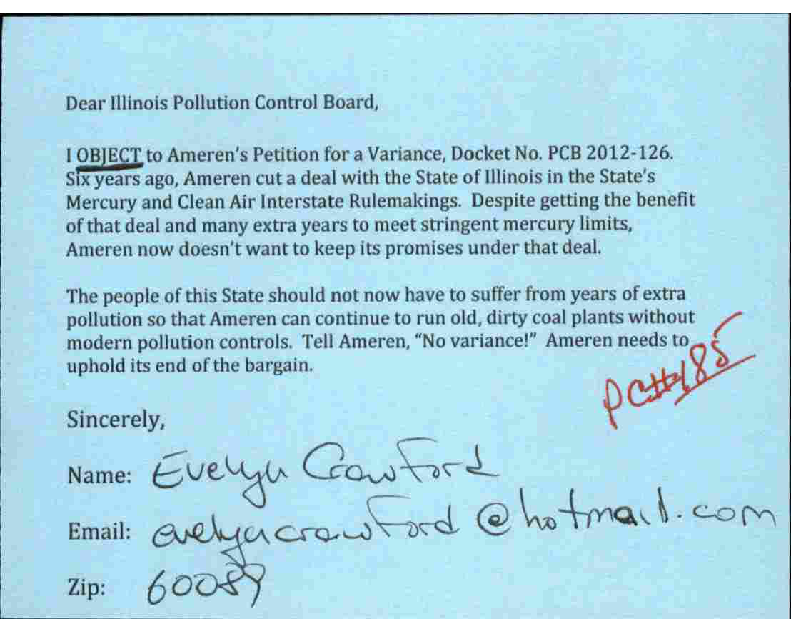 Dear Illinois Pollution Control Board,
I OBJECT to Ameren's Petition for a Variance, Docket No. PCB 2012-126.
Six years ago, Ameren cut a deal with the State of Illinois in the State's
Mercury and Clean Air Interstate Rulemakings. Despite getting the benefit
of that deal and many extra years to meet stringent mercury limits,
Ameren now doesn't want to keep its promises under that deal.
The people of this State should not now have to suffer from years of extra
pollution so that Ameren can continue to run old, dirty coal plants without
modern pollution controls. Tell Ameren, "No variance!" Ameren needs to
uphold its end of the bargain.
PC#185
Sincerely,
Name: Evelyn Crawford
Email: evelyncrawford@hotmail.com
Zip: 60089